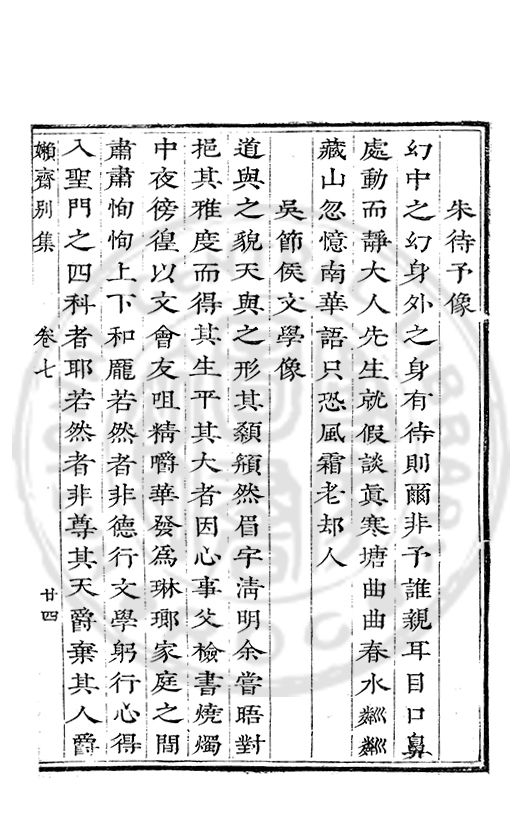 朱待予像
幻中之幻身外之身有待則爾非予誰親耳目口鼻
處動而靜大人先生就假談眞寒塘曲曲春水粼粼
藏山忽憶南華語只恐風霜老却人
吳節侯文學像
道與之貌天與之形其顙頯然眉宇淸明余嘗晤對
挹其雅度而得其生平其大者因心事父檢書燒燭
中夜徬徨以文會友咀精嚼華發爲琳瑯家庭之間
肅肅恂恂上下和龎若然者非德行文學躬行心得
入聖門之四科者耶若然者非尊其天爵棄其人爵
嬾齋別集 卷七 廿四